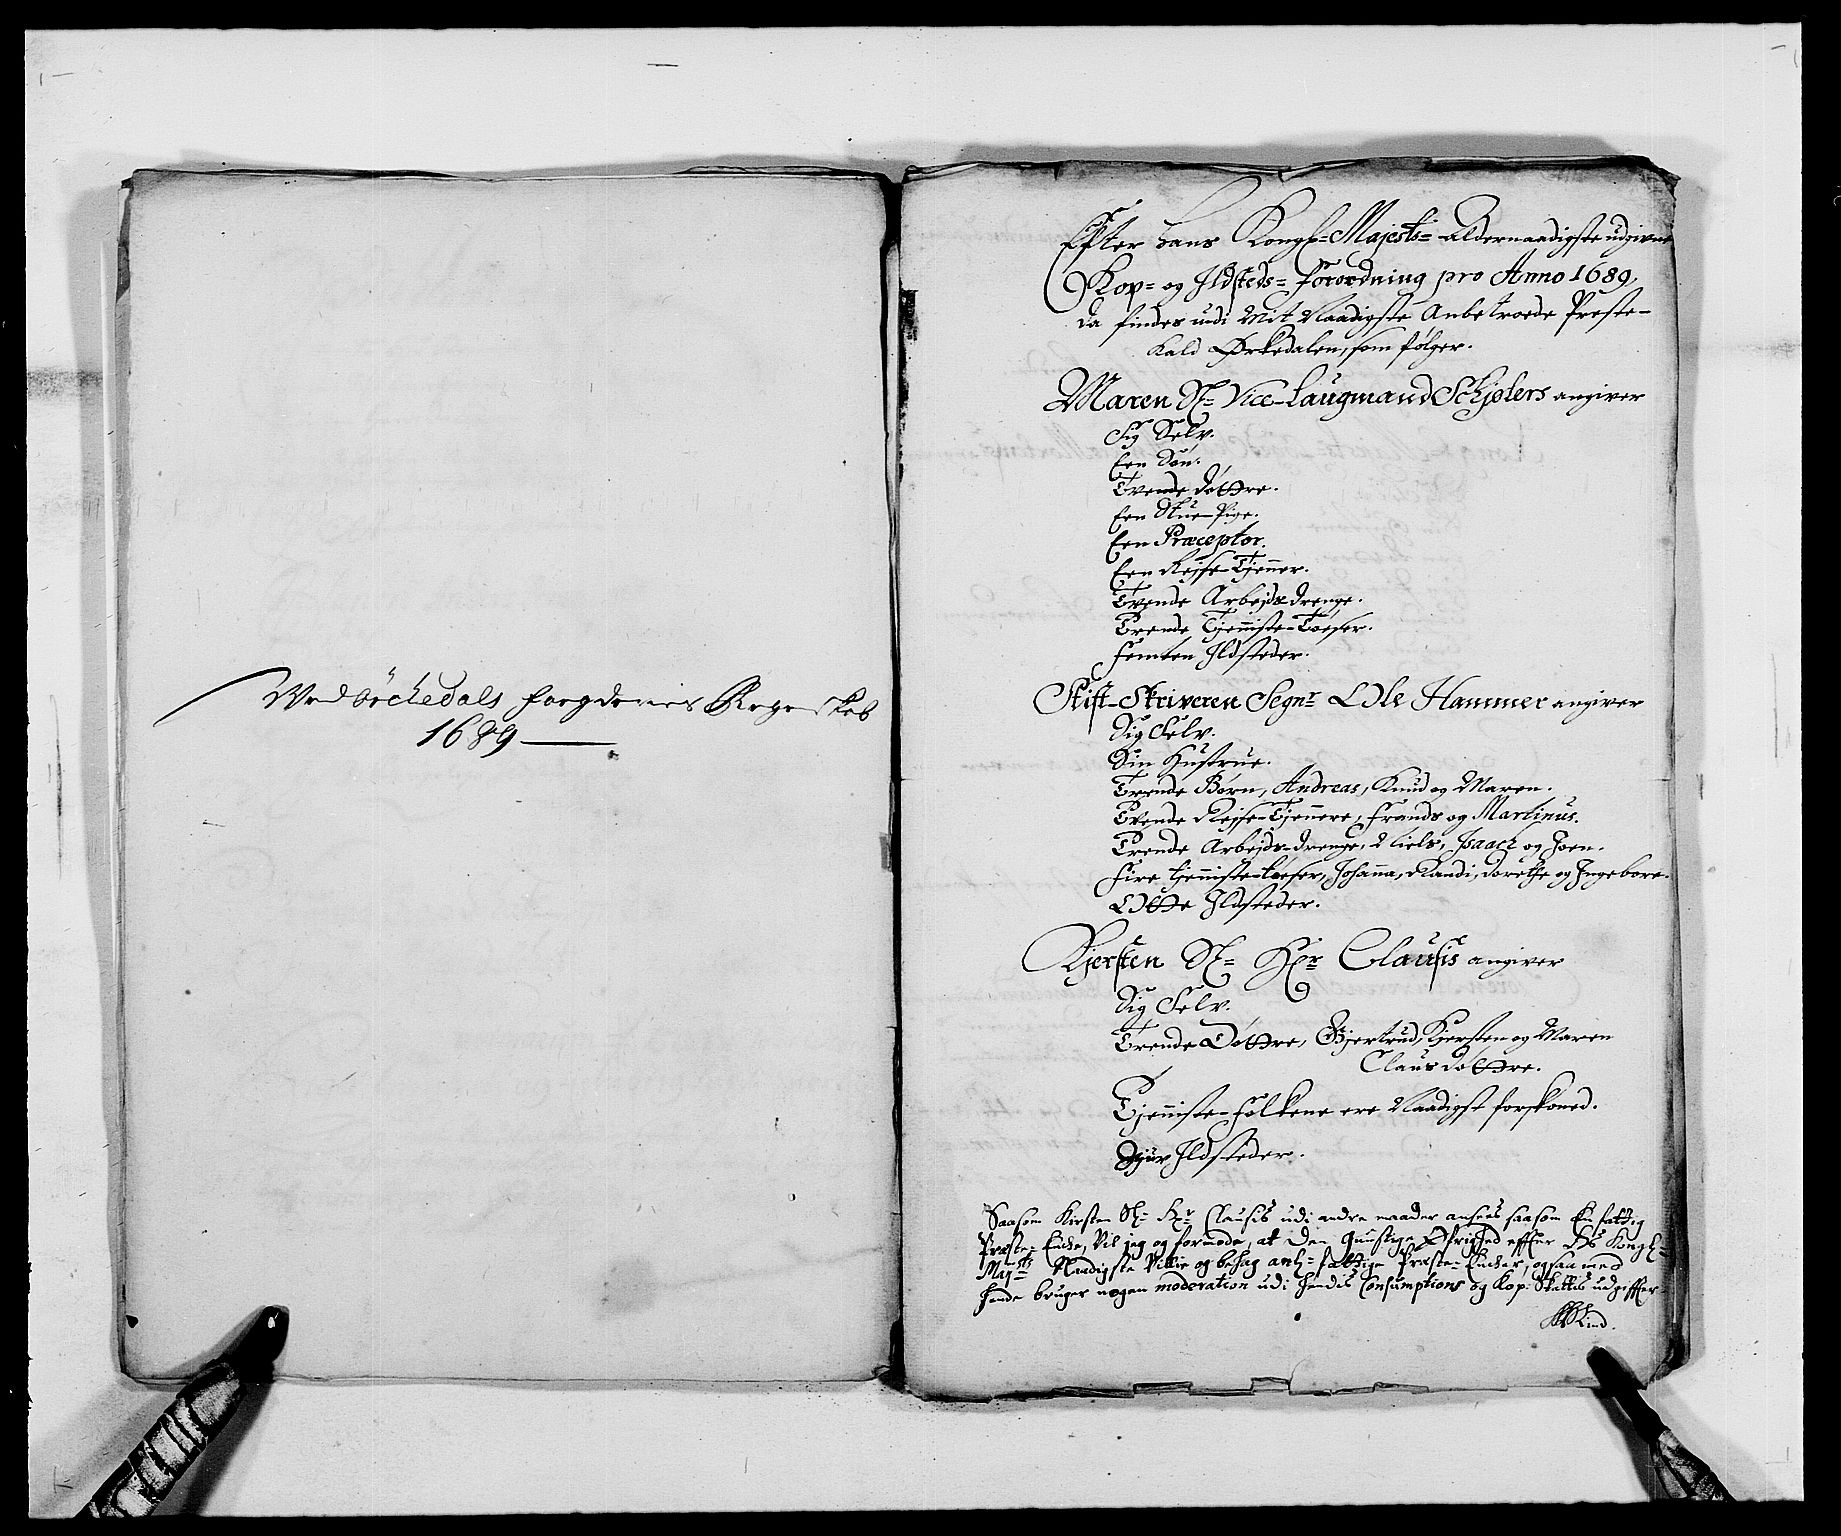 VedØrchedals Fogderies Regenskab
1689
Efter Hans Kongl= Majests= Aldernaadigste udgivne
Kop= og Ildsteds= Forordning pro Anno 1689,
da findes udi Mit Naadigste Anbetroede Preste-
Kald Ørkedalen, som følger.
Maren Sl= Vice-Laugmand Schjølers angiver
Sig Selv.
Een Søn.
Tvende Døttre.
Een Stue-Pige.
Een Præceptor.
Een Rejse-Tjenner.
Tvende Arbejds-drenge.
Trende Tjenniste-Tøeser.
Femten Ildsteder.
Stift-Skriveren Segnr Ole Hammer angiver
Sig Selv.
Sin Hustrue.
Trende Børn, Andreas, Knud og Maren.
Tvende Rejse-Tjennere, Frands og Martinus.
Trende Arbejds-drenge, Niels, Isaach og Joen.
Fire tjenniste-tøeser, Johanna, Randi, Dorethe og Ingebore.
Otte Ildsteder.
Kjersten Sl= Hr Clausis angiver
Sig Selv.
Trende Døttre, Gjertrud, Kjersten og Maren
Clausdøttre.
Tjenniste-Folkene ere Naadigst forskoned.
Ildsteder.
Saasom Kirsten Sl= Hr Clausis udi andre maader ansees saasom En fattig
Præste-Encke, Vil jeg og formode, at den Gunstige Øfrighed effter Hs Kongl=
Majts Naadigste Villie og behag anl= fattige Præste-Encker, ogsaa med
hende bruger nogen moderation udi hendis Consumptions og Kop-Skattis udgiffter
Lind.